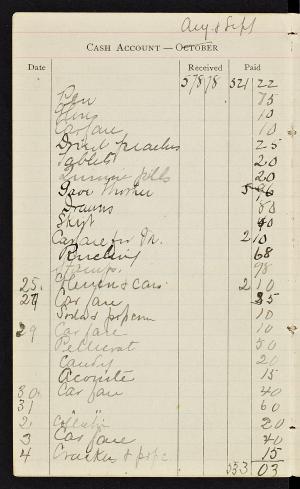 Aug & Sept
CASH ACCOUNT — OCTOBER
Date Received Paid
578 78 321 22
Pen 75
10
Car fare 10
Dried peaches 25
Tablets 20
Quinine pills 20
Gave Mother 5
Prawns 80
Skirt
Car fare for 2 10
Ruching 68
Stamps 98
25 & cars 2 10
Car fare
Soda & popcorn 10
29 Car fare 10
Petticoat 50
Candy 20
15
30 Car fare 40
31 60
2 Collar 20
3 Car fare 40
4 Crackers & 15
353 03